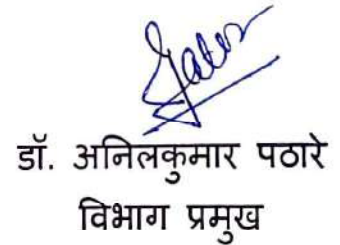 डॉ. अनिलकुमार पठारे
विभाग प्रमुख